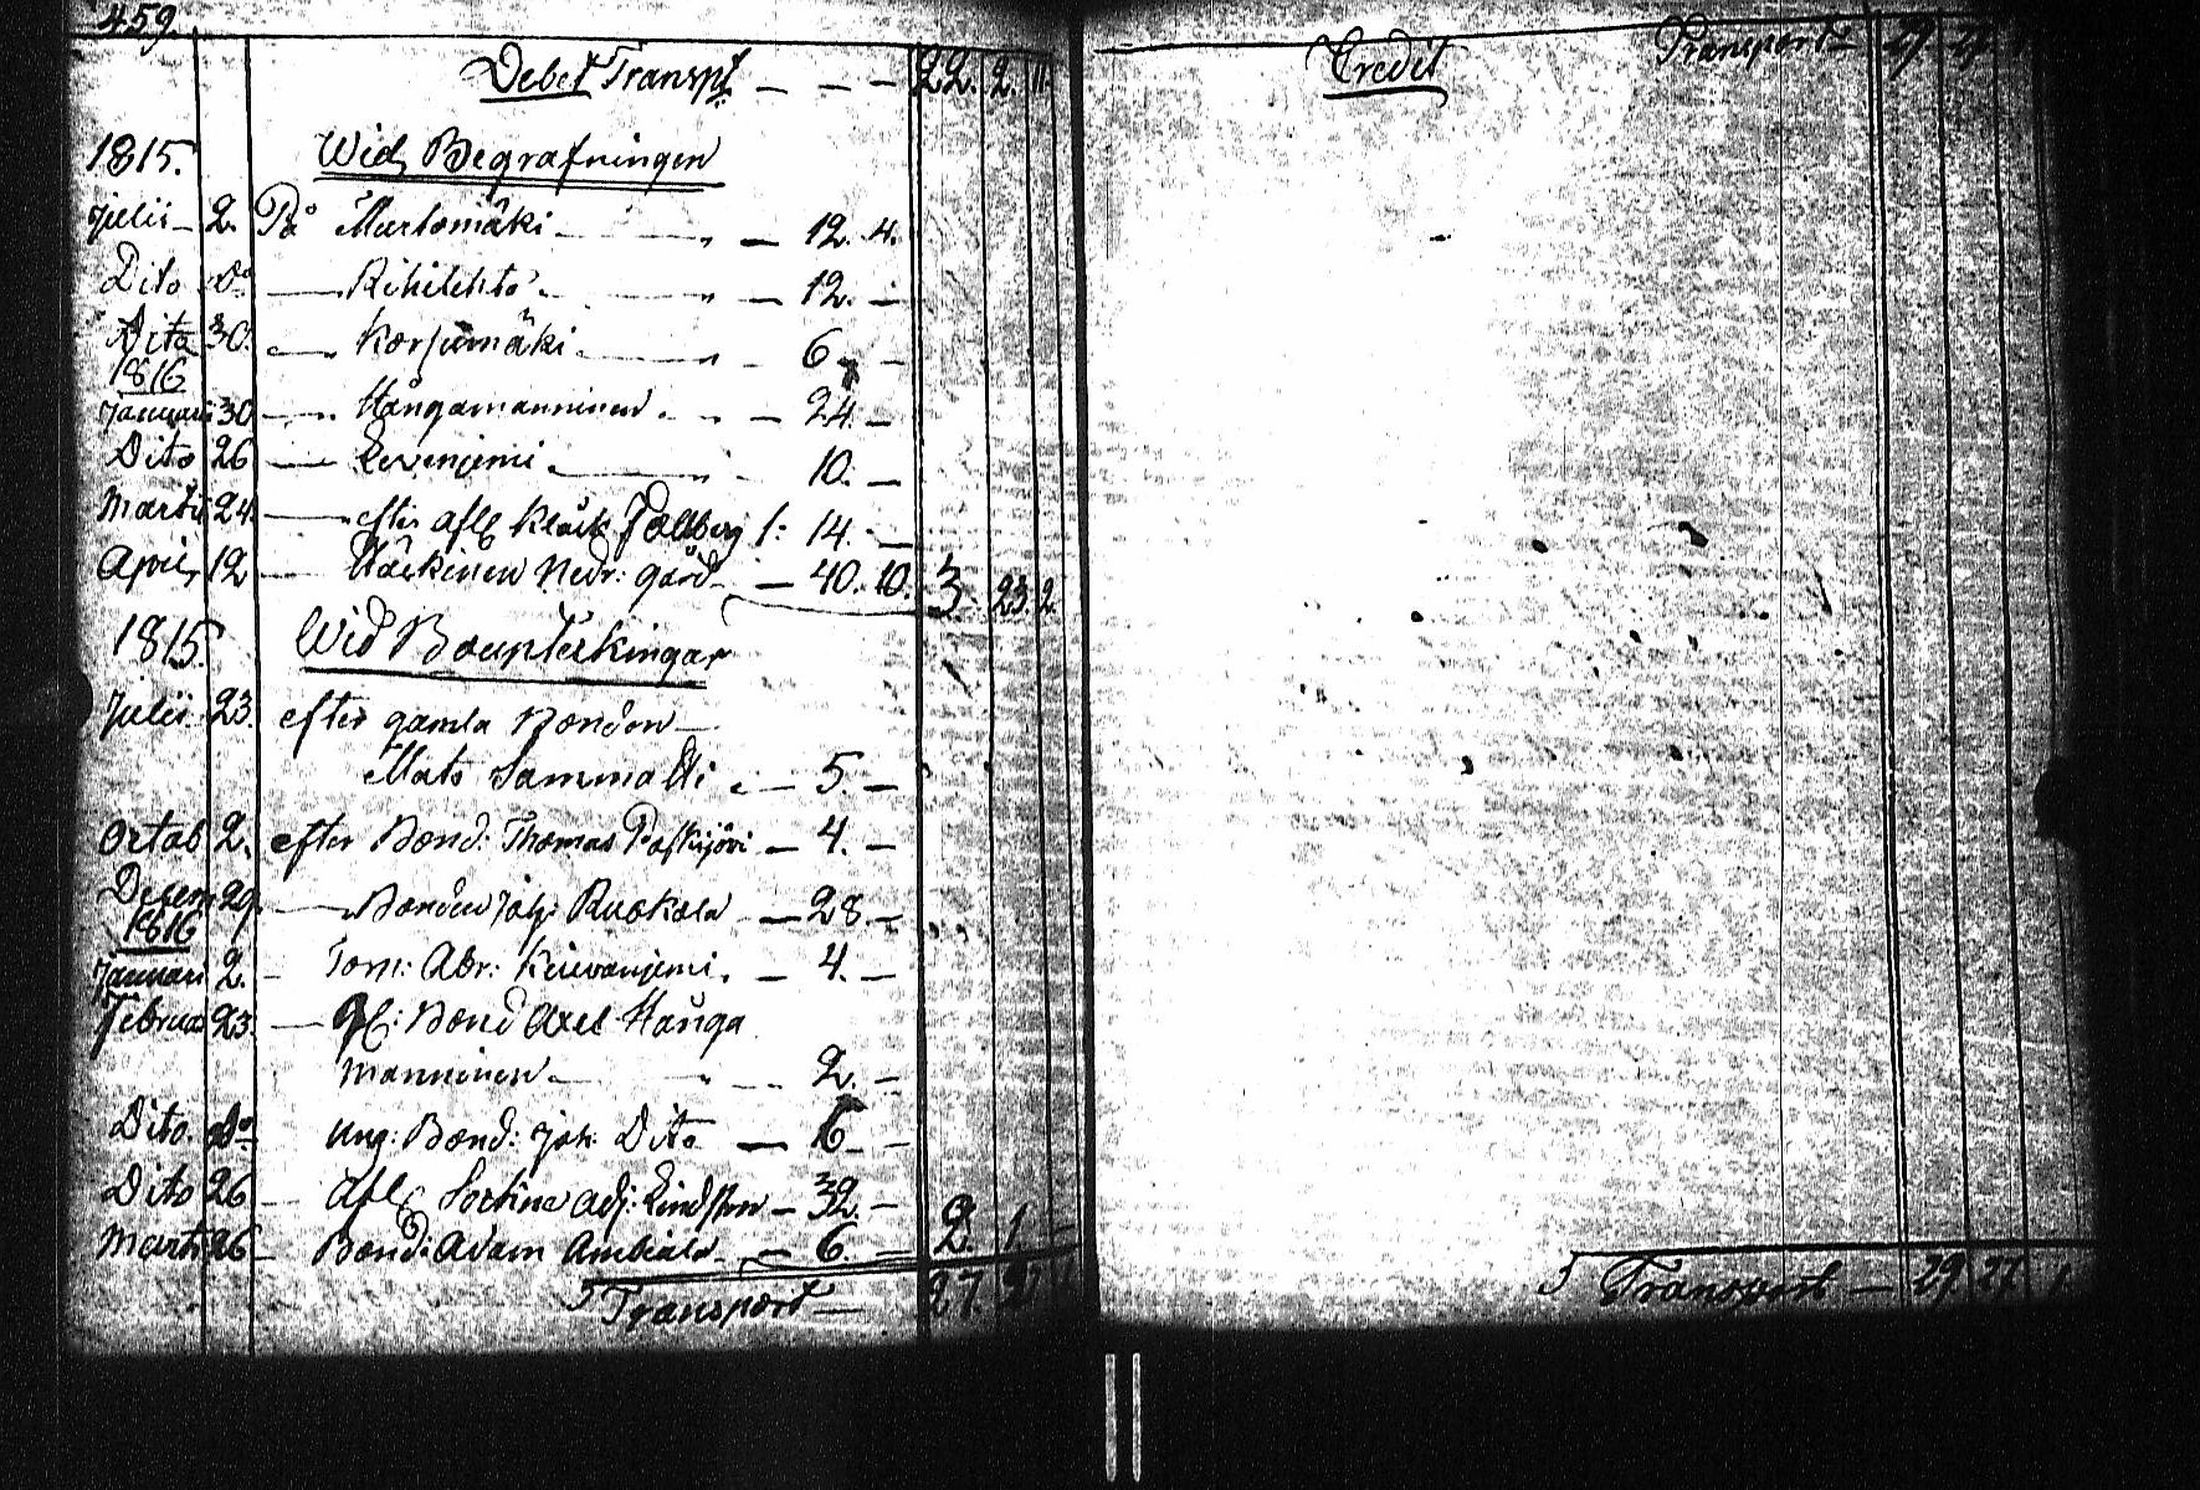 459.
Debet Transpt — — — 22. 2. 11
1815. Wid Begrafningen
Julii — 2. På Murtomäki — — 12. 4.
Dito do — Rihilehto — — 12. —
Dito 30. — Korjumäki — — 6. —
1816
Januari 30 — Hångamanninen — 24. —
Dito 26 — Levenjemi — — 10. —
Martii 24. — efter afl. Klock 1: 14. —
April 12 — Häckinen Nedr: gård — 40. 10. 3. 23. 2.
1815. Wid Boupteckingar
Julii 23. efter gamla Bonden —
Mats Sammatti — 5. —
Octob 2. efter Bond: Thomas — 4. —
Decem 29. — Bonden Joh: Ruokola — 28. —
1816
Januari 2. — Torp: Abr: — 4. —
Februar 23. — Gl: Bond Axel Hånga
manninen — — 2. —
Dito do Ung: Bond: Joh: Dito — 6 —
Dito 26 — Afl. adj: Lindstrom — 32. —
Marti 26 — Bond: Adam — 6. — 2. 1 —
Transport — 27. 27
Credit Transport — 29 27
Transport — 29. 27. 1